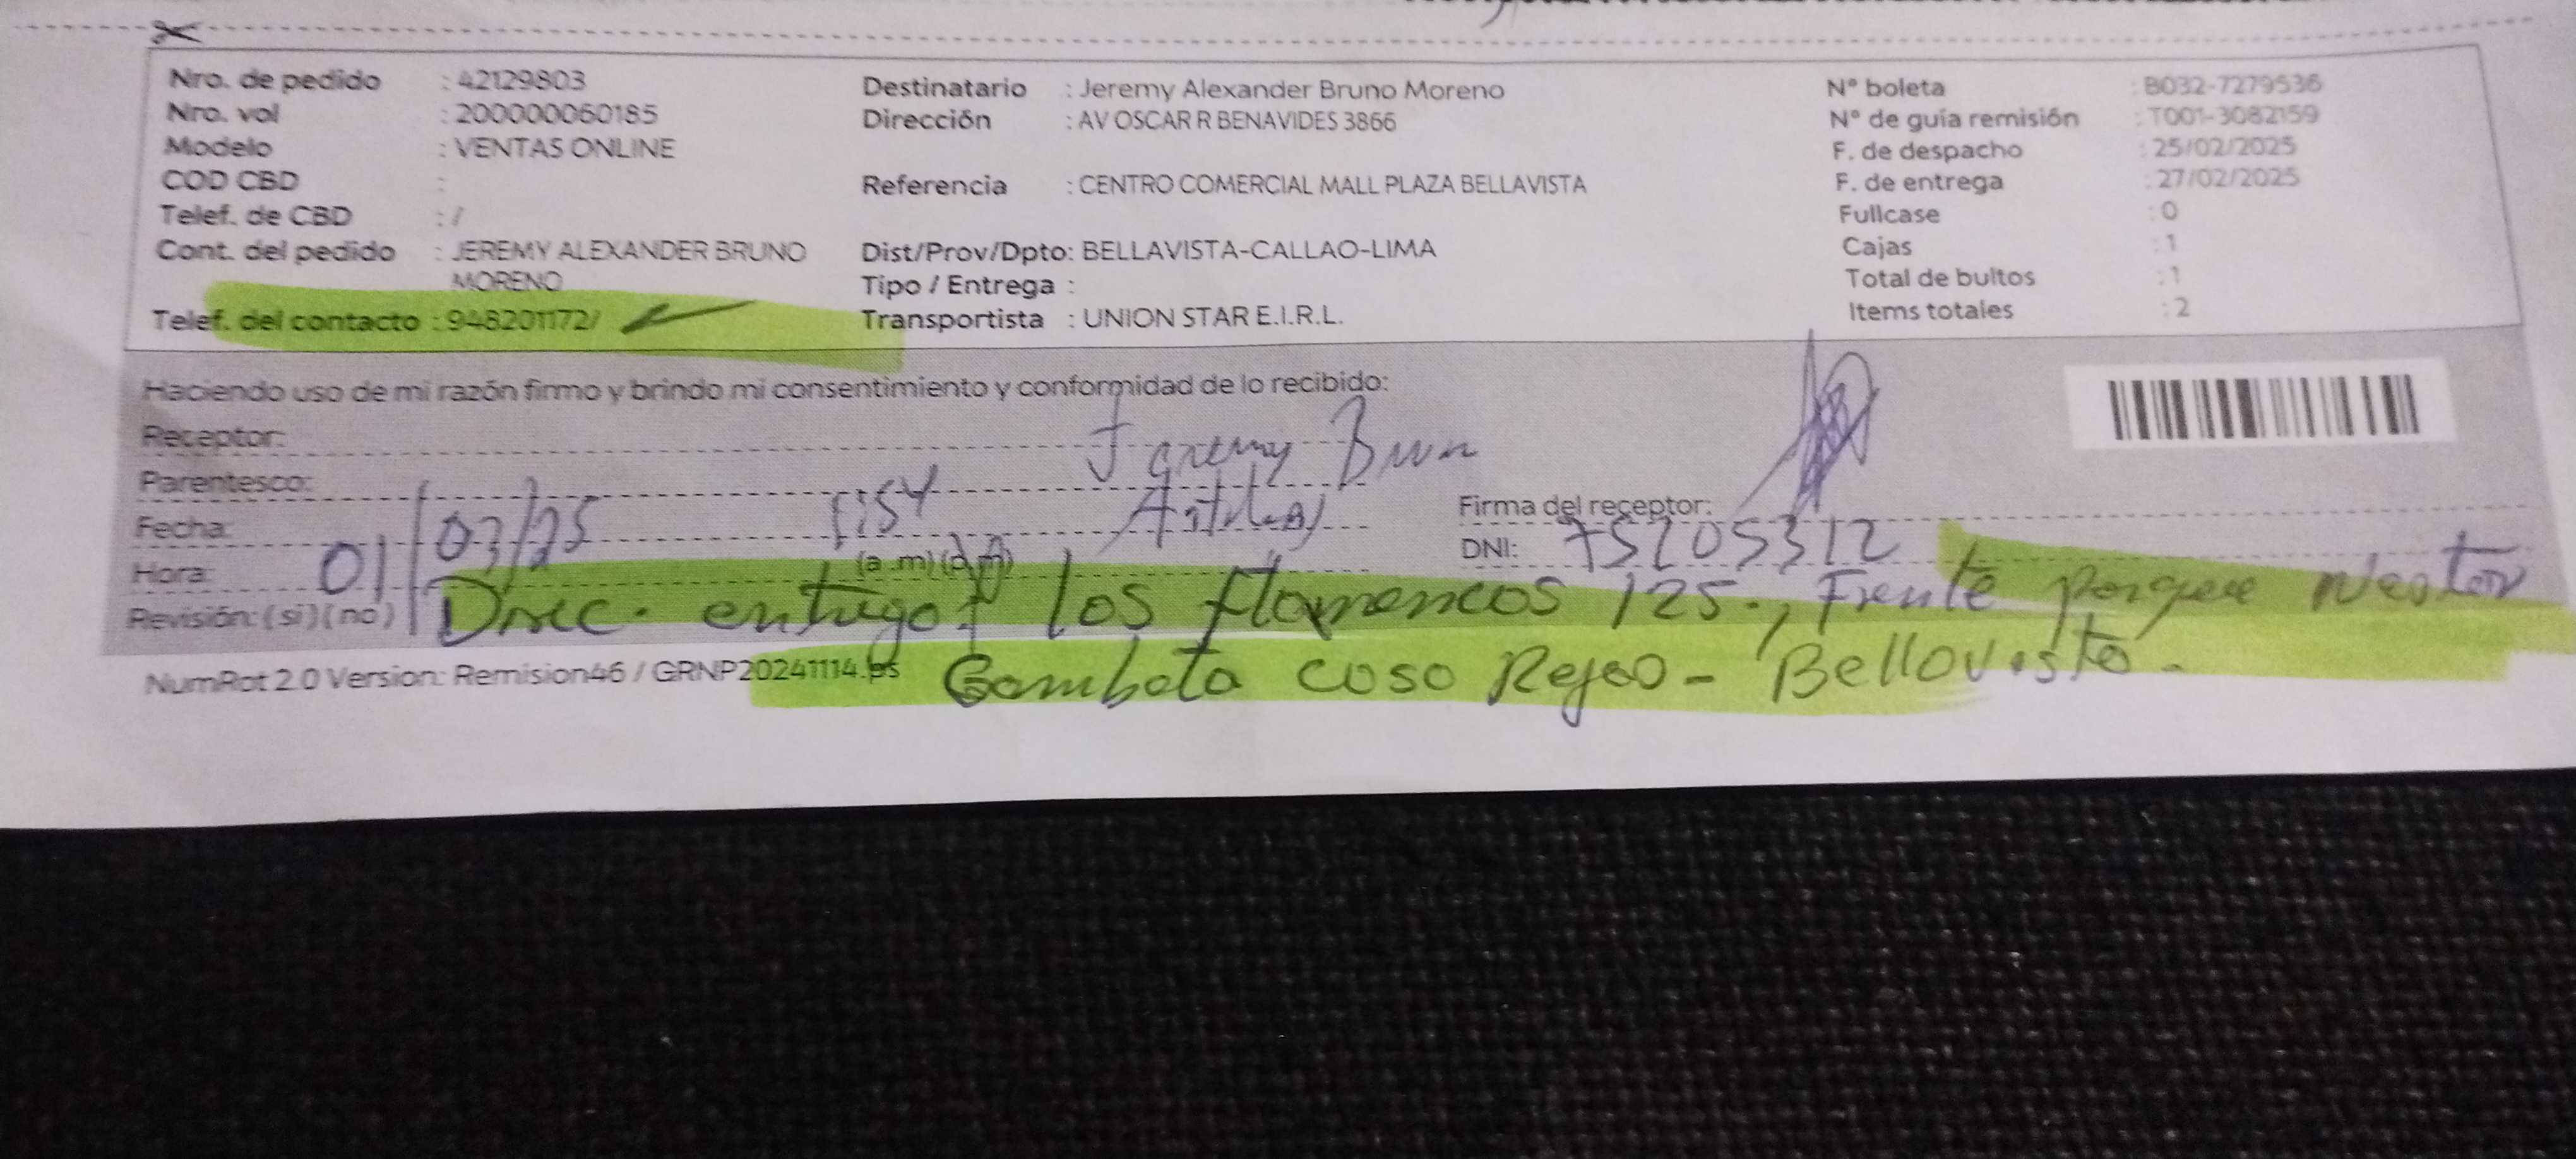 Nro. de pedido : 42129803
Nro. vol : 200000060185
Modelo : VENTAS ONLINE
COD CBD :
Telef. de CBD : /
Cont. del pedido : JEREMY ALEXANDER BRUNO
MORENO
Telef. del contacto : 948201172/
Destinatario : Jeremy Alexander Bruno Moreno
Dirección : AV OSCAR R BENAVIDES 3866
Referencia : CENTRO COMERCIAL MALL PLAZA BELLAVISTA
Dist/Prov/Dpto: BELLAVISTA-CALLAO-LIMA
Tipo / Entrega :
Transportista : UNION STAR E.I.R.L.
N° boleta : B032-7279536
N° de guía remisión : T001-3082159
F. de despacho : 25/02/2025
F. de entrega : 27/02/2025
Fullcase : 0
Cajas : 1
Total de bultos : 1
Items totales : 2
Haciendo uso de mi razón firmo y brindo mi consentimiento y conformidad de lo recibido:
Receptor: Jeremy
Parentesco:
Fecha: 01/03/25
Hora: (a.m)(p.m)
Revisión: (si)(no)
Firma del receptor:
DNI: 75205312
Direc. entrega: los flamencos 125., Frente parque Nestor
Gambeta casa Rejas - Bellavista -
NumRot 2.0 Version: Remision46 / GRNP20241114.ps